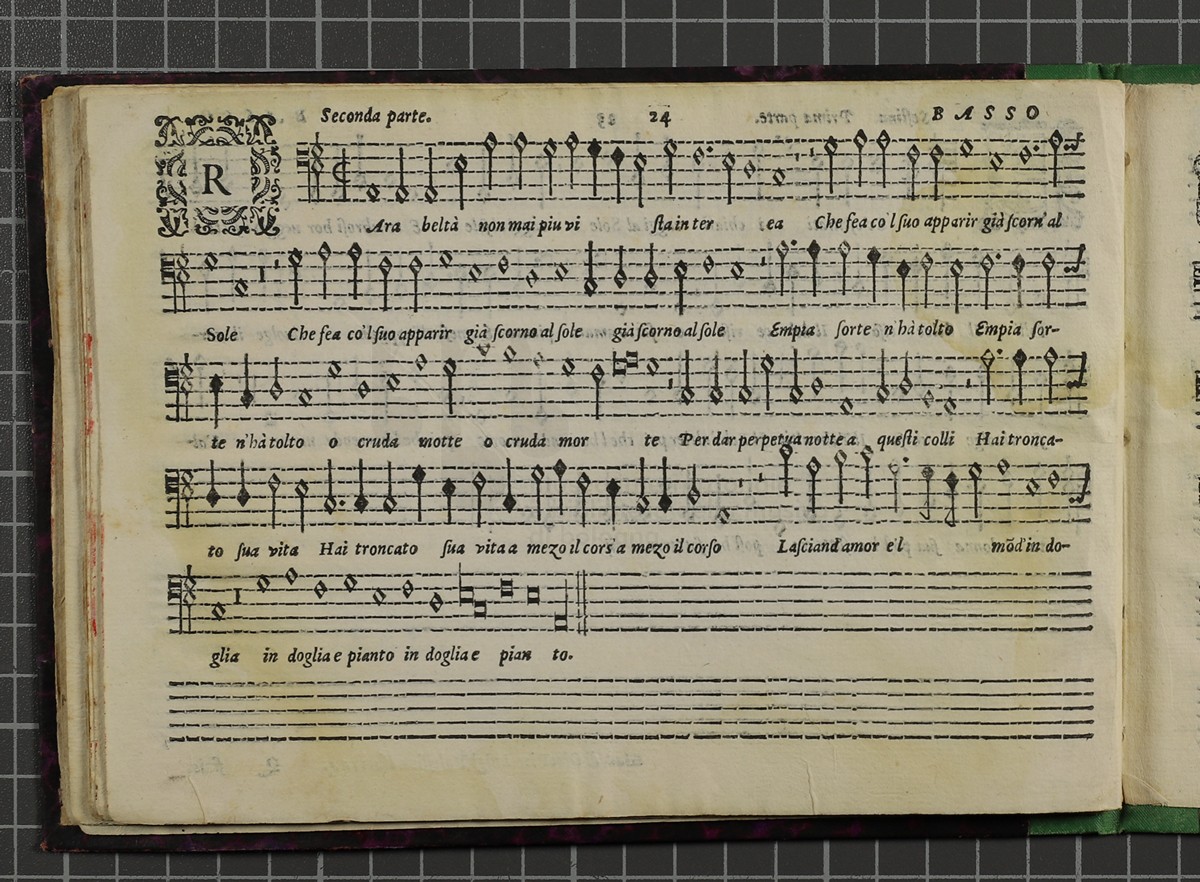 Seconda parte. 24 BASSO
R
Ara beltà non mai piu vi sta in ter ea Che fea co'l suo apparir già scorn'al
Sole Che fea co'l suo apparir già scorno al sole già scorno al sole Empia sorte n'hà tolto Empia sor-
te n'hà tolto o cruda motte o cruda mor te Per dar perpetua notte a questi colli Hai tronca-
to sua vita Hai troncato sua vita a mezo il cors'a mezo il corso Lasciand'amor e'l mõd'in do-
glia in doglia e pianto in doglia e pian to.